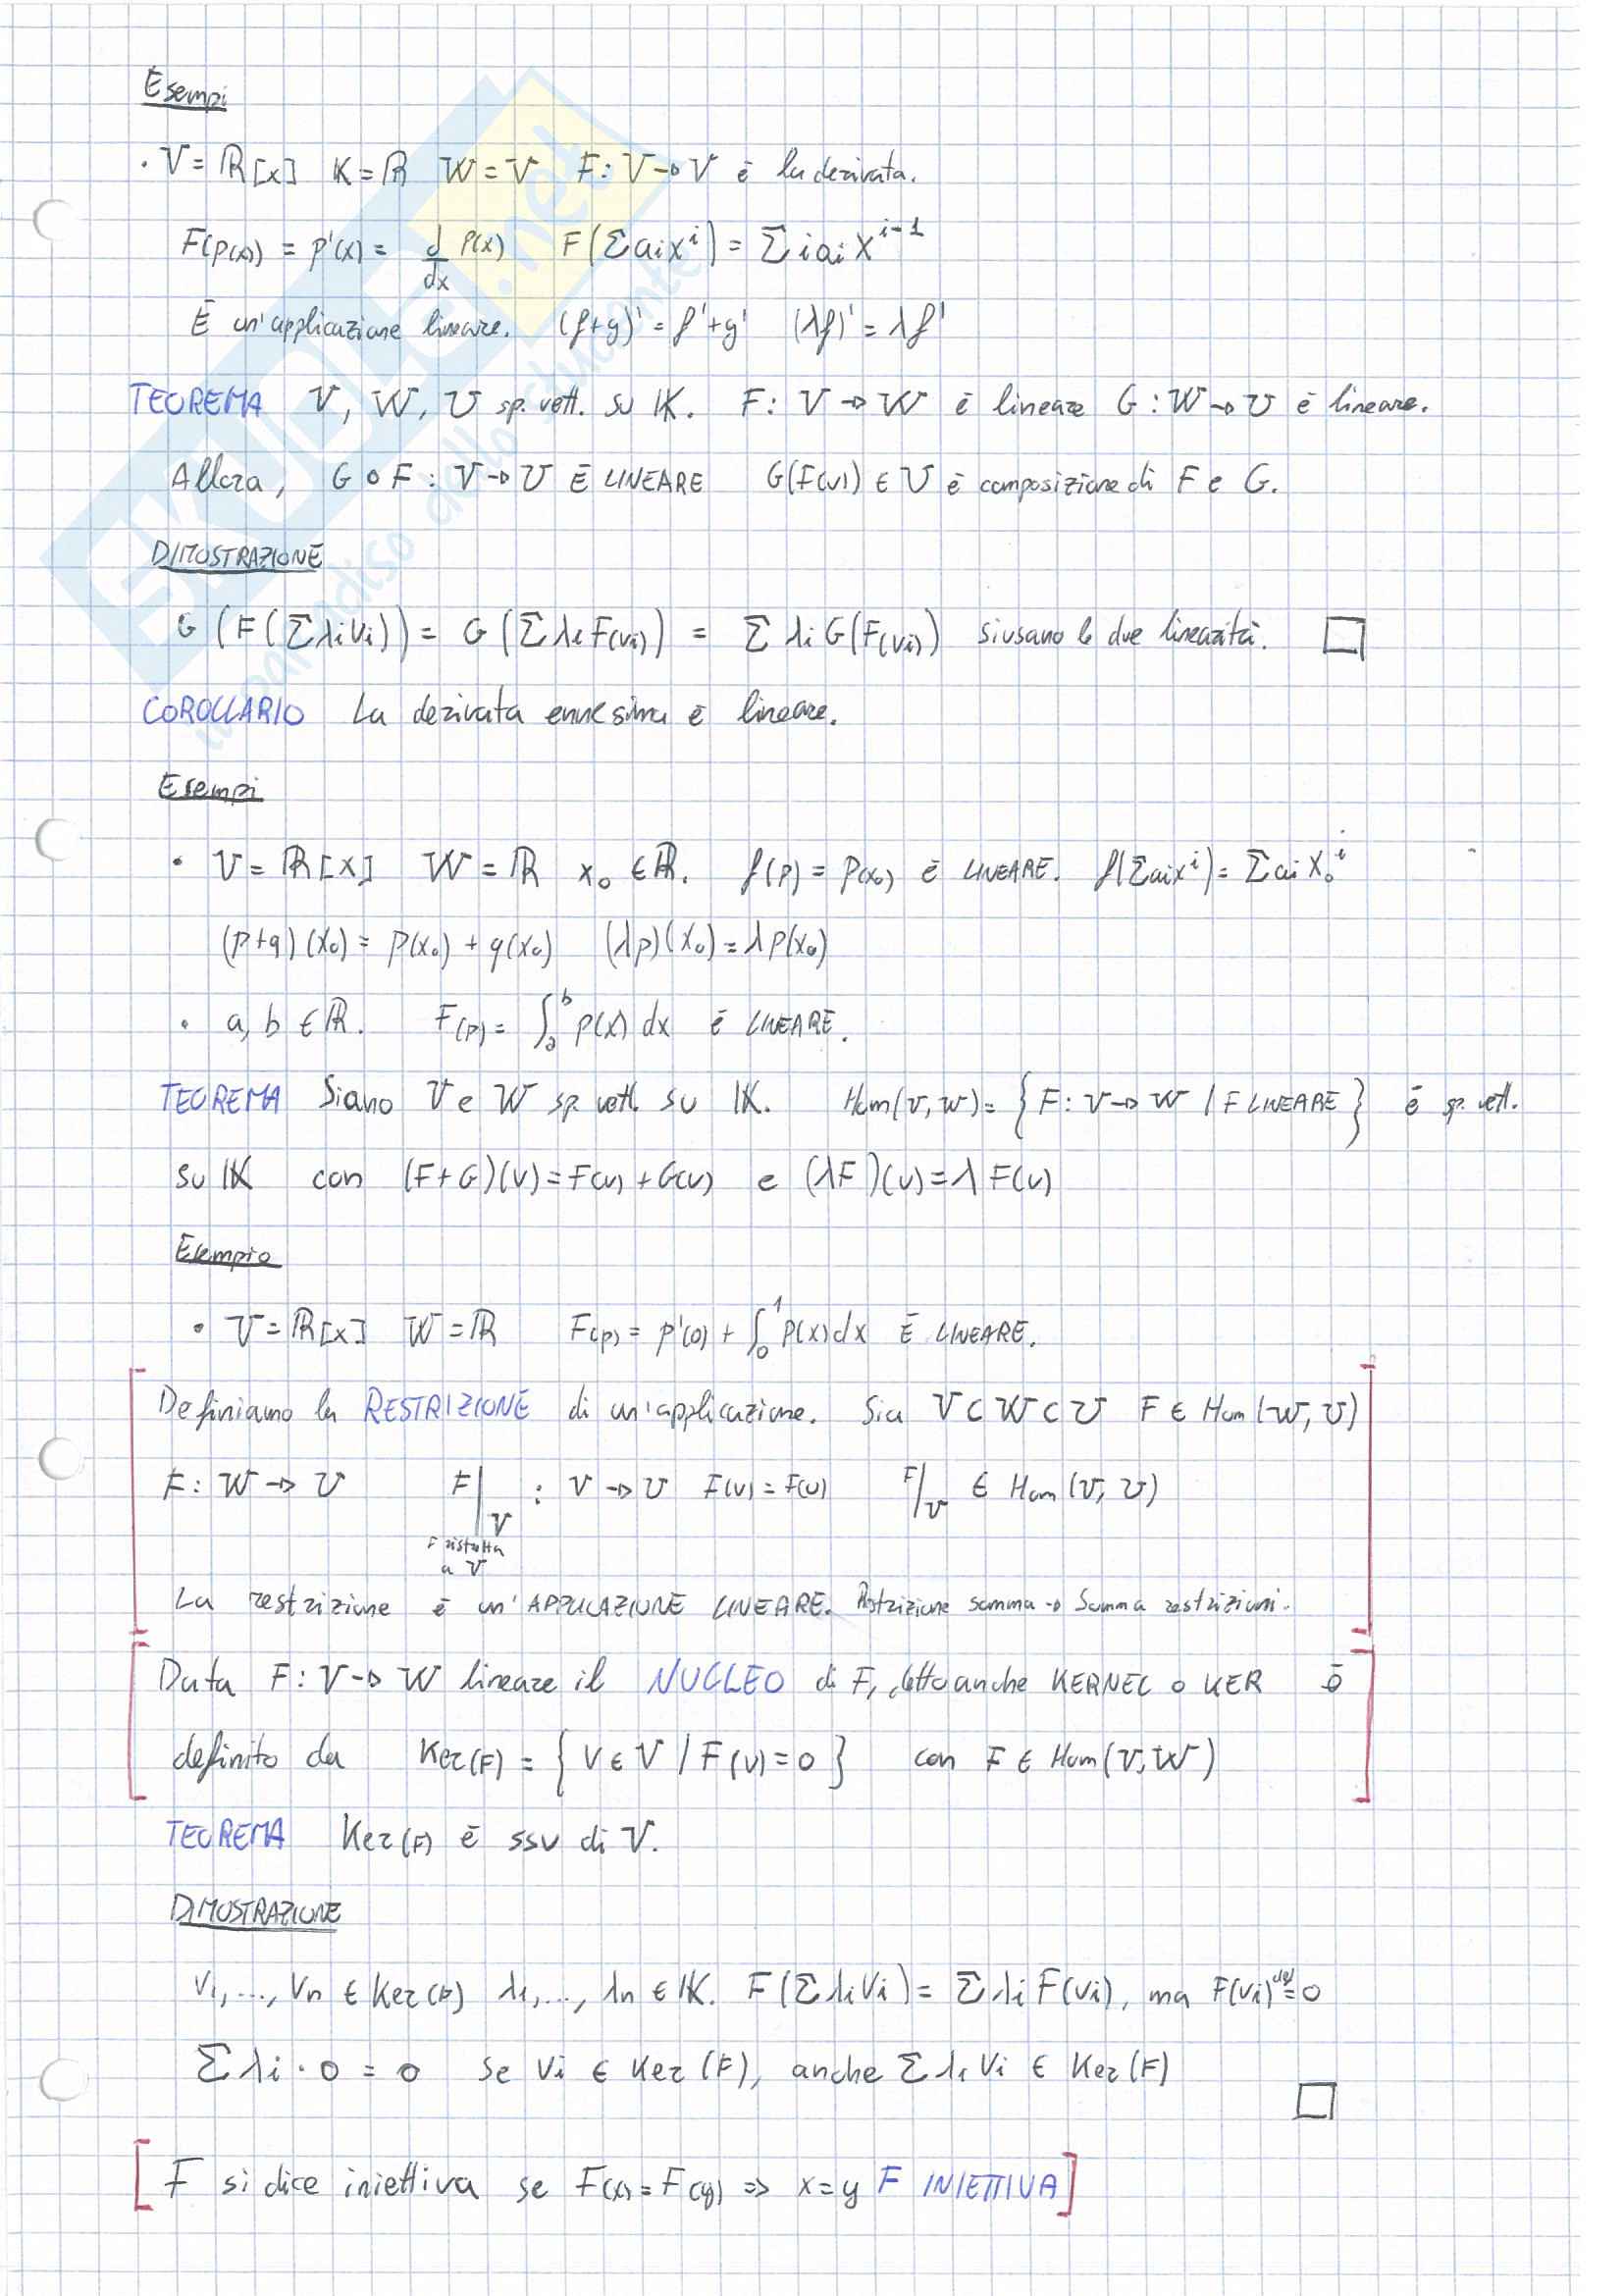 Esempi
· V = ℝ[x] K = ℝ W = V F: V → V è la derivata.
F(p(x)) = p'(x) = d/dx p(x) F(Σ aᵢxⁱ) = Σ i aᵢ xⁱ⁻¹
È un'applicazione lineare. (f+g)' = f'+g' (λf)' = λf'
TEOREMA V, W, U sp. vett. su 𝕂. F: V → W è lineare G: W → U è lineare.
Allora, G∘F: V → U È LINEARE G(F(v)) ∈ U è composizione di F e G.
DIMOSTRAZIONE
G(F(Σ λᵢvᵢ)) = G(Σ λᵢF(vᵢ)) = Σ λᵢG(F(vᵢ)) si usano le due linearità. □
COROLLARIO La derivata ennesima è lineare.
Esempi
· V = ℝ[x] W = ℝ x₀ ∈ ℝ. f(p) = p(x₀) è LINEARE. f(Σaᵢxⁱ) = Σ aᵢ x₀ⁱ
(p+q)(x₀) = p(x₀) + q(x₀) (λp)(x₀) = λp(x₀)
· a, b ∈ ℝ. F(p) = ∫ₐᵇ p(x) dx è LINEARE.
TEOREMA Siano V e W sp. vett. su 𝕂. Hom(V,W) = {F: V → W / F LINEARE} è sp. vett.
su 𝕂 con (F+G)(v) = F(v) + G(v) e (λF)(v) = λF(v)
Esempio
· V = ℝ[x] W = ℝ F(p) = p'(0) + ∫₀¹ p(x)dx È LINEARE.
Definiamo la RESTRIZIONE di un'applicazione. Sia V ⊂ W ⊂ U F ∈ Hom(W, U)
F: W → U F|V : V → U F(v) = F(v) F|V ∈ Hom(V, U)
F ristretta
a V
La restrizione è un'APPLICAZIONE LINEARE. Restrizione somma → Somma restrizioni.
Data F: V → W lineare il NUCLEO di F, detto anche KERNEL o KER è
definito da Ker(F) = {v ∈ V / F(v) = 0} con F ∈ Hom(V,W)
TEOREMA Ker(F) è ssv di V.
DIMOSTRAZIONE
v₁, ..., vₙ ∈ Ker(F) λ₁, ..., λₙ ∈ 𝕂. F(Σ λᵢvᵢ) = Σ λᵢF(vᵢ), ma F(vᵢ) =ᵈᵉᶠ 0
Σ λᵢ · 0 = 0 se vᵢ ∈ Ker(F), anche Σ λᵢvᵢ ∈ Ker(F) □
[F si dice iniettiva se F(x) = F(y) ⇒ x = y F INIETTIVA]
SKUOLA.net
il paradiso dello studente